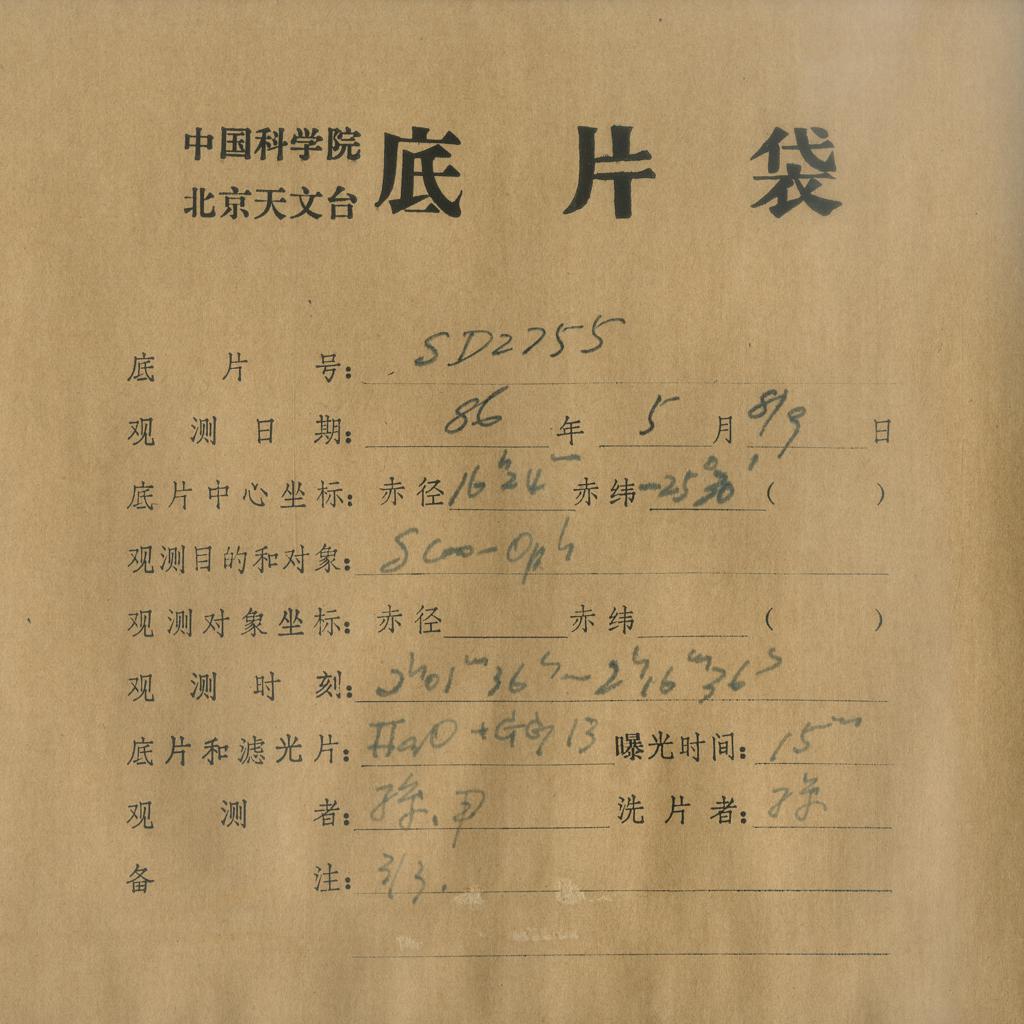 中国科学院
北京天文台 底片袋
底片号: SD2755
观测日期: 86年 5月 8/9日
底片中心坐标: 赤径 16h24m 赤纬 -25°30′ ( )
观测目的和对象: Sco-Oph
观测对象坐标: 赤径 赤纬 ( )
观测时刻: 2h01m36s-2h16m36s
底片和滤光片: IIaO+GG13 曝光时间: 15m
观测者: 孙、尹 洗片者: 孙
备注: 3/3.